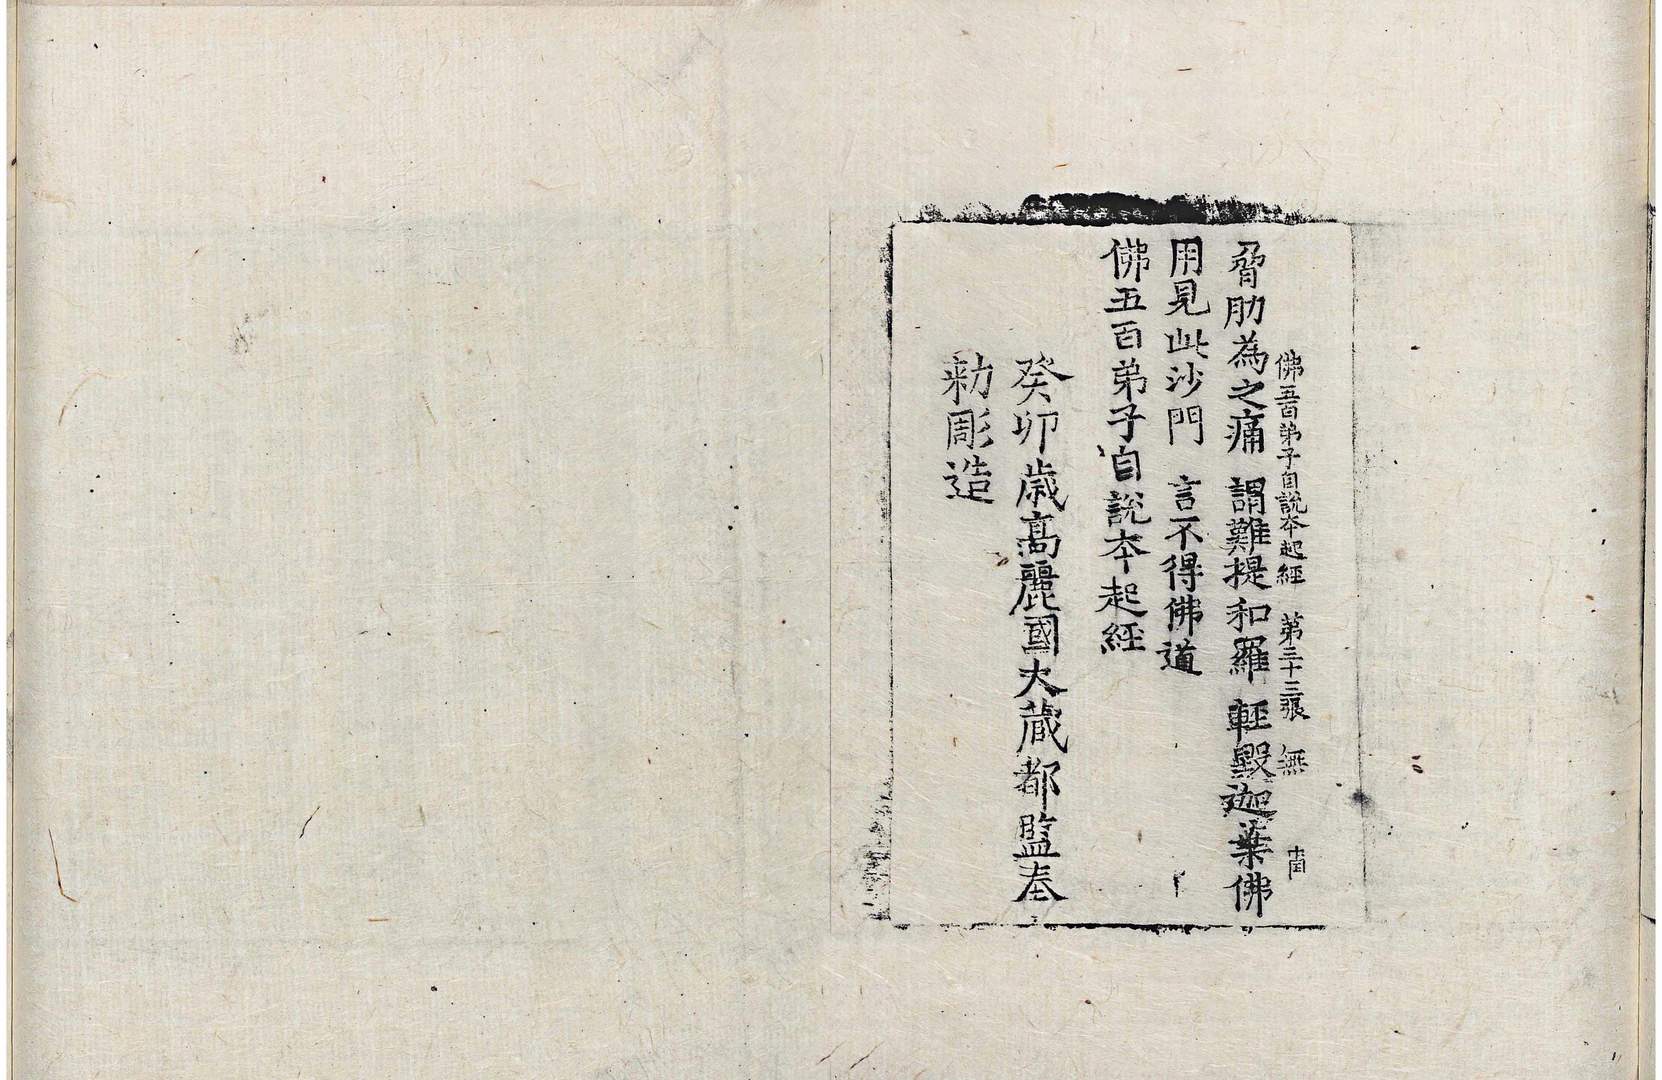 佛五百弟子自說夲起經 第三十三張 無
脅肋為之痛 謂難提和羅 輕毀迦葉佛
用見此沙門 言不得佛道
佛五百弟子自說夲起經
癸卯歳髙麗國大蔵都監奉
勑彫造